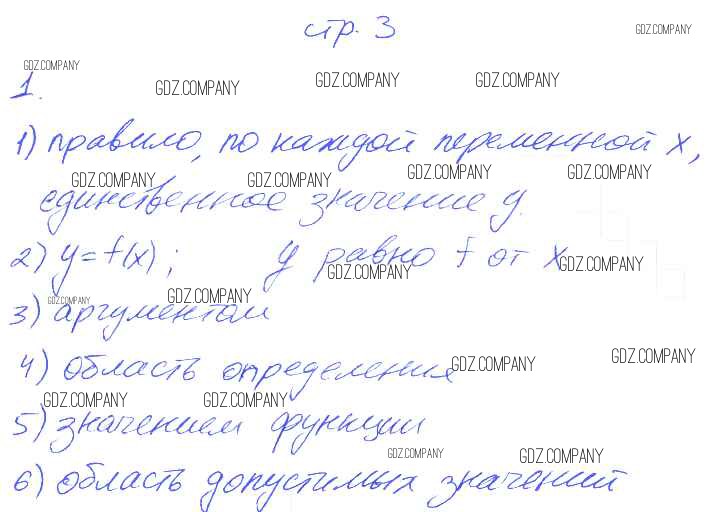 стр. 3
GDZ.COMPANY
GDZ.COMPANY
1.
GDZ.COMPANY GDZ.COMPANY GDZ.COMPANY
1) правило, по каждой переменной x,
GDZ.COMPANY GDZ.COMPANY GDZ.COMPANY GDZ.COMPANY
единственное значение y.
2) y = f(x) ; y равно f от x
GDZ.COMPANY GDZ.COMPANY
GDZ.COMPANY GDZ.COMPANY
3) аргументом
GDZ.COMPANY GDZ.COMPANY
4) область определения
GDZ.COMPANY GDZ.COMPANY
5) значением функции
GDZ.COMPANY GDZ.COMPANY
6) область допустимых значений